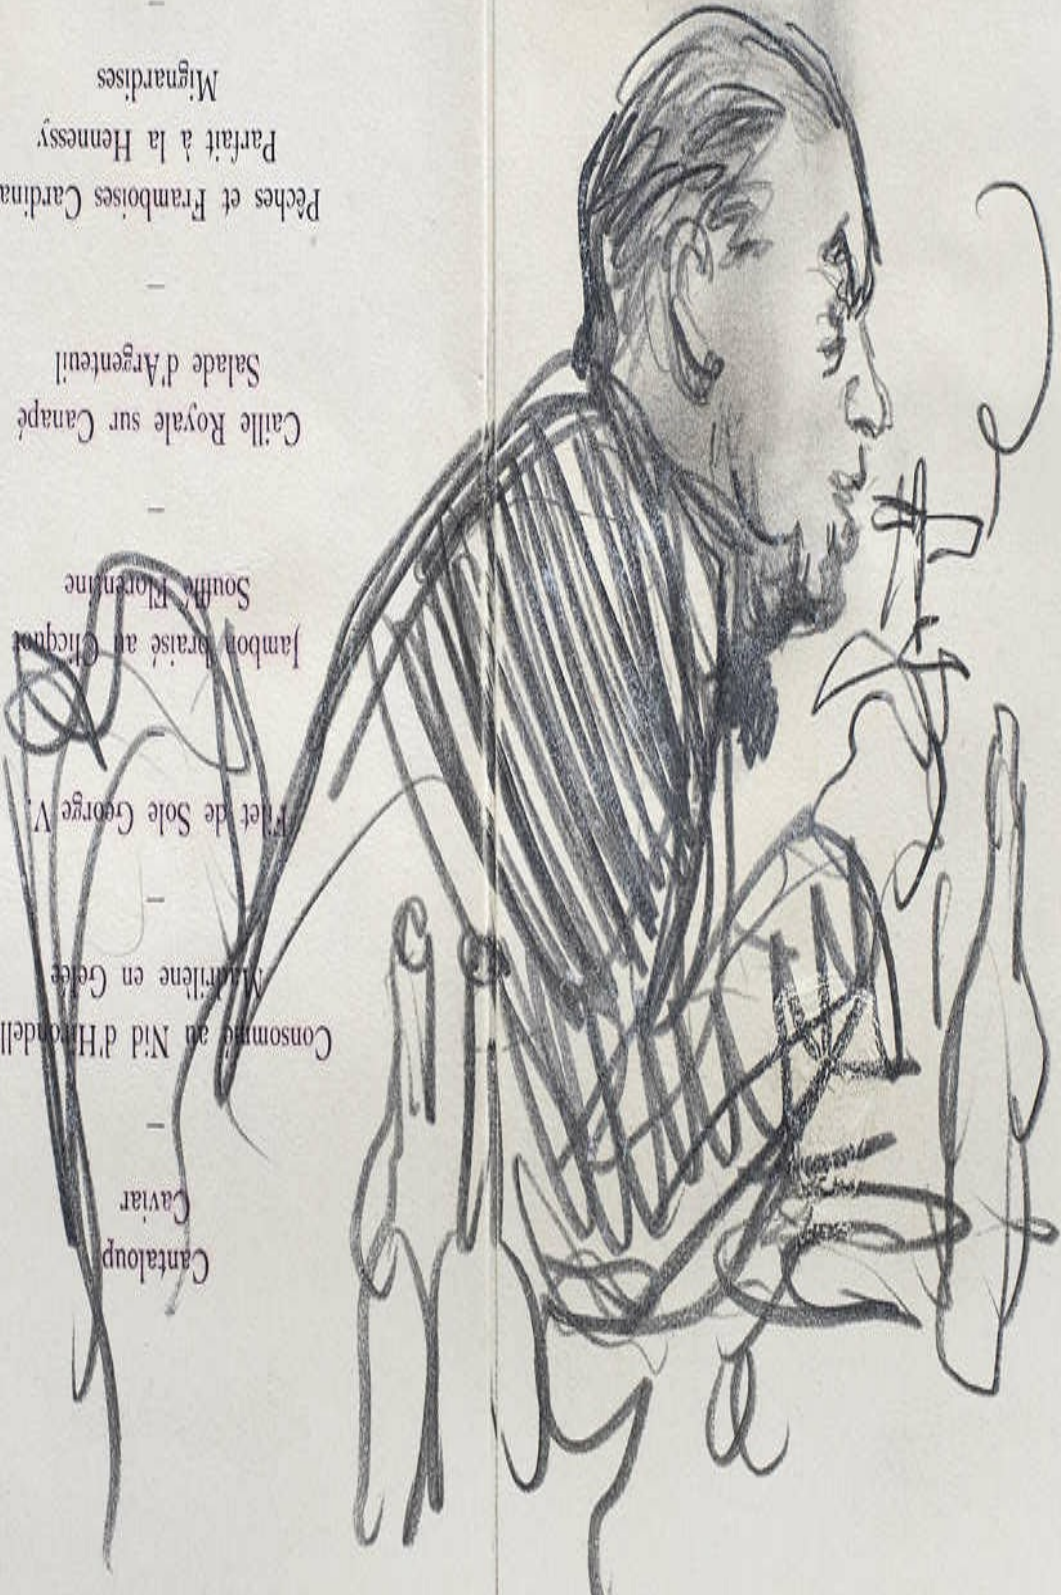 Cantaloup
Caviar
—
Consommé au Nid d'Hirondell
Madrilène en Gelée
—
Filet de Sole George V.
—
Jambon braisé au Clicquot
Soufflé Florentine
—
Caille Royale sur Canapé
Salade d'Argenteuil
—
Pêches et Framboises Cardina
Parfait à la Hennessy
Mignardises
—